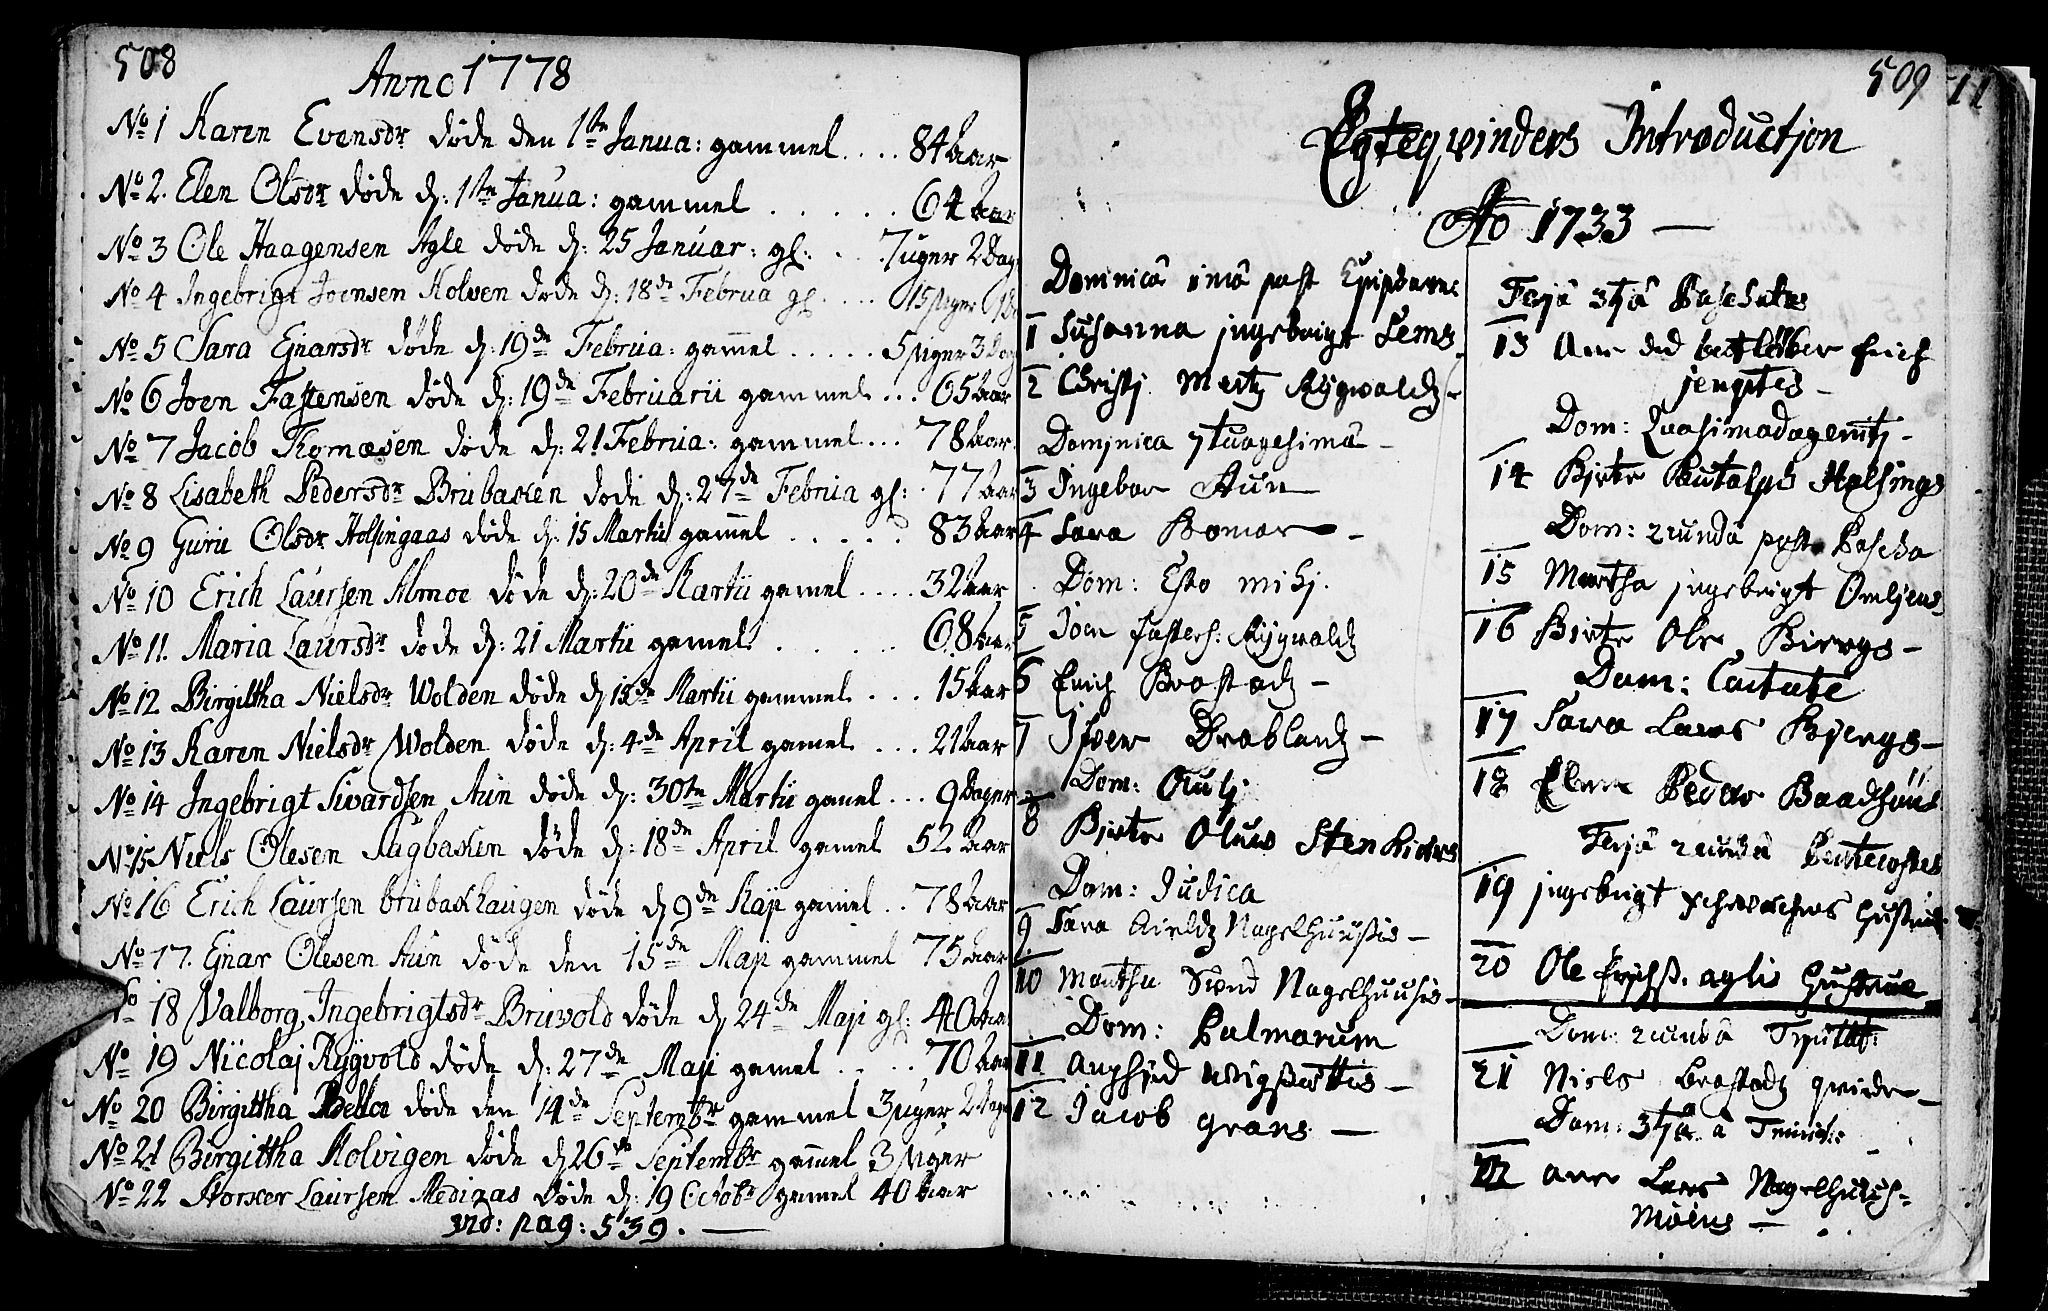 508
Anno 1778
No 1 Karen Evensdr døde den 1te Janua: gammel .... 84 Aar
No 2. Elen Olsdr døde d: 1te Janua: gammel ..... 64 Aar
No 3 Ole Haagensen Agle døde d: 25 Januar: gl: . . 7 uger 2 Dag
No 4 Ingebrigt Joensen Holven døde d: 18de Februa gl .... 15 uger
No 5 Sara Ejnarsdr døde d: 19de Februa: gamel ..... 5 uger 3 Dag
No 6 Joen Fastensen døde d: 19de Februarii gammel ... 65 Aar
No 7 Jacob Thomæsen døde d: 21 Februa: gammel ... 78 Aar
No 8 Lisabeth Pedersdr Brubakken døde d: 27de Februa gl: . 77 Aar
No 9 Guru Olsdr Holsingaas døde d: 15 Martii gamel ..... 83 Aar
No 10 Erich Laursen Almoe døde d: 20de Martii gamel .... 32 Aar
No 11. Maria Laursdr døde d: 21 Martii gamel ..... 68 Aar
No 12 Birgittha Nielsdr Wolden døde d 18de Martii gammel ... 15 Aar
No 13 Karen Nielsdr Wolden døde d: 4de April gamel ... 21 Aar
No 14 Ingebrigt Sivardsen Aun døde d: 30te Martii gamel ... 9 Dager
No 15 Niels Olesen Saugbakken døde d: 18de April gamel 52 Aar
No 16 Erich Laursen Brubakhaugen døde d 9de Maji gamel .. 78 Aar
No 17. Ejnar Olesen Aun døde den 15de Maji gammel 75 Aar
No 18 Walborg Ingebrigtsdr Bruvold døde d 24de Maji gl: 40 Aar
No 19 Nicolaj Rygvold døde d: 27de Maji gamel .... 70 Aar
No 20 Birgittha døde den 14de Septembr gammel 3 uger 2 Dage
No 21 Birgittha Holvigen døde d 26de Septembr gamel 3 uger
No 22 Storker Laursen Medizaas døde d: 19 Octobr gamel 40 Aar
vid: pag: 539.
509
11
Egteqvinders Introduction
Ao 1733
Dominica 1mâ post Epiphanie
1 Susanna Ingebrigt Sems
2 Christj. Mortz Rygwaldz
Dominica 7tuagesimâ
3 Ingebor Aun
4 Sara Bomoe
Dom: Esto mihj.
5 Joen fastens: Rygwaldz
6 Erich Brostadz
7 Ifver Drablandz
Dom: Oculj
8 Birte Oluus Stenkiers
Dom: Judica
9 Sara Nagelhuusis
10 Martha Siond Nagelhuusis
Dom: Palmarum
11
12 Jacob Grans
Feriâ 3tiâ Paschatos
13 Ane Erich
jengstes
Dom: Quasimodogenitj
14 Birte Holsings
Dom: 2cundâ post Pascha
15 Martha jngebrigt Omljens
16 Birte Ole Biergs
Dom: Cantate
17 Sara Lars Bjergs
18 Elen Peder Baadshuus
Feriâ 2cunda Pentecostes
19 jngebrigt Hustrue
20 Ole Erichs. aglis Hustrue
Dom: 2cundâ Trinitat:
21 Niels Brostadz qvinde
Dom: 3tiâ â Trinit:
22 Ane Lars Nagelhuus-
Moens